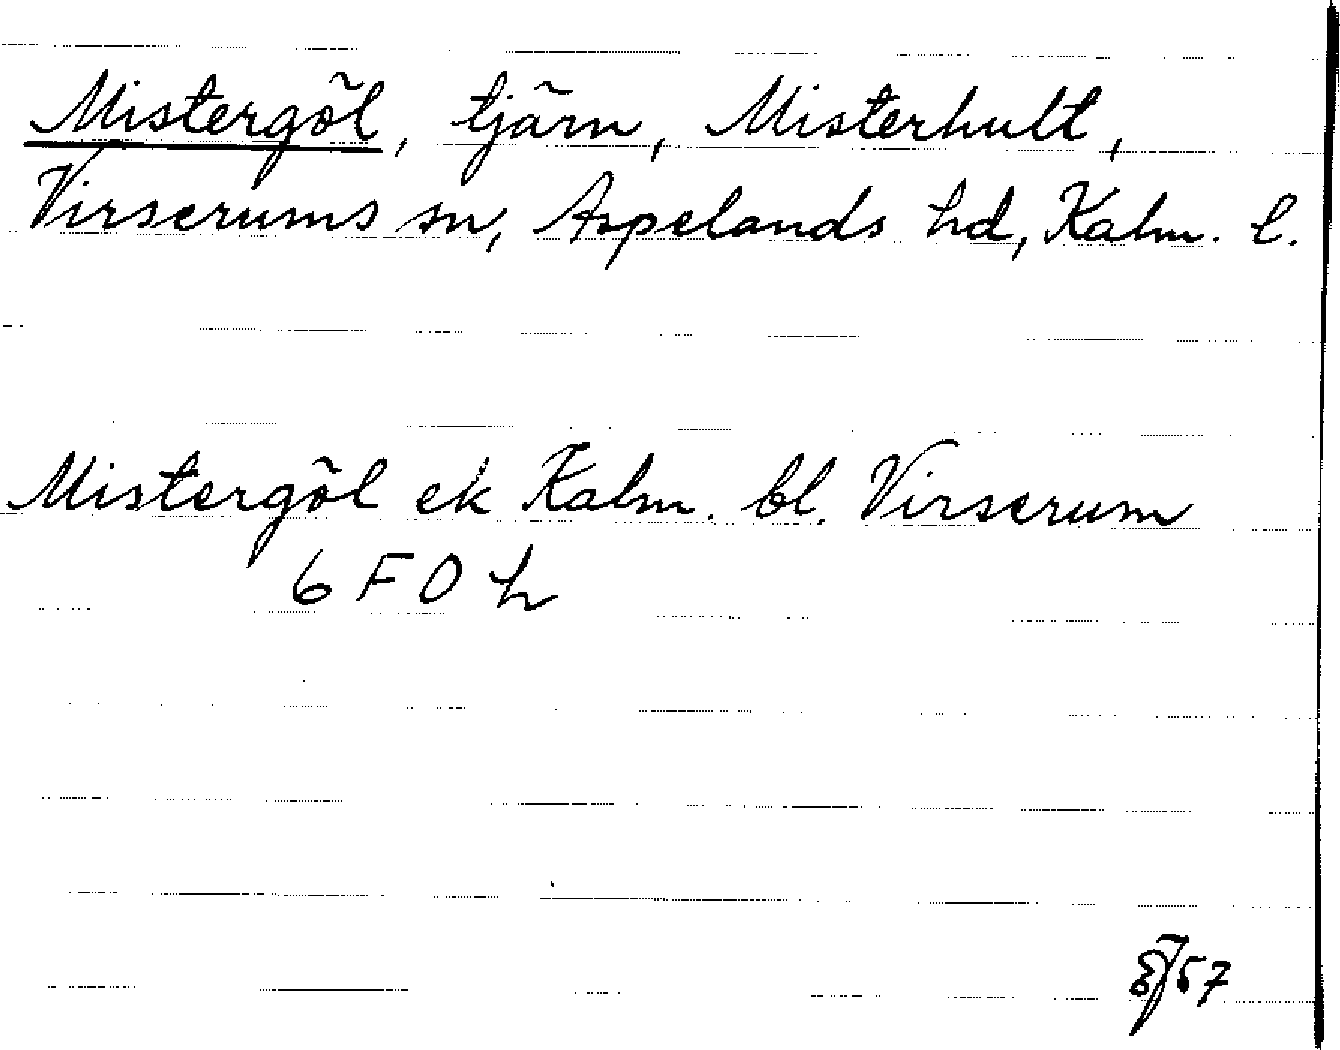 Mistergöl, tjärn, Misterhult,
Virserums sn, Aspelands hd, Kalm. l.
Mistergöl ek Kalm. bl. Virserum
6 F O h
57